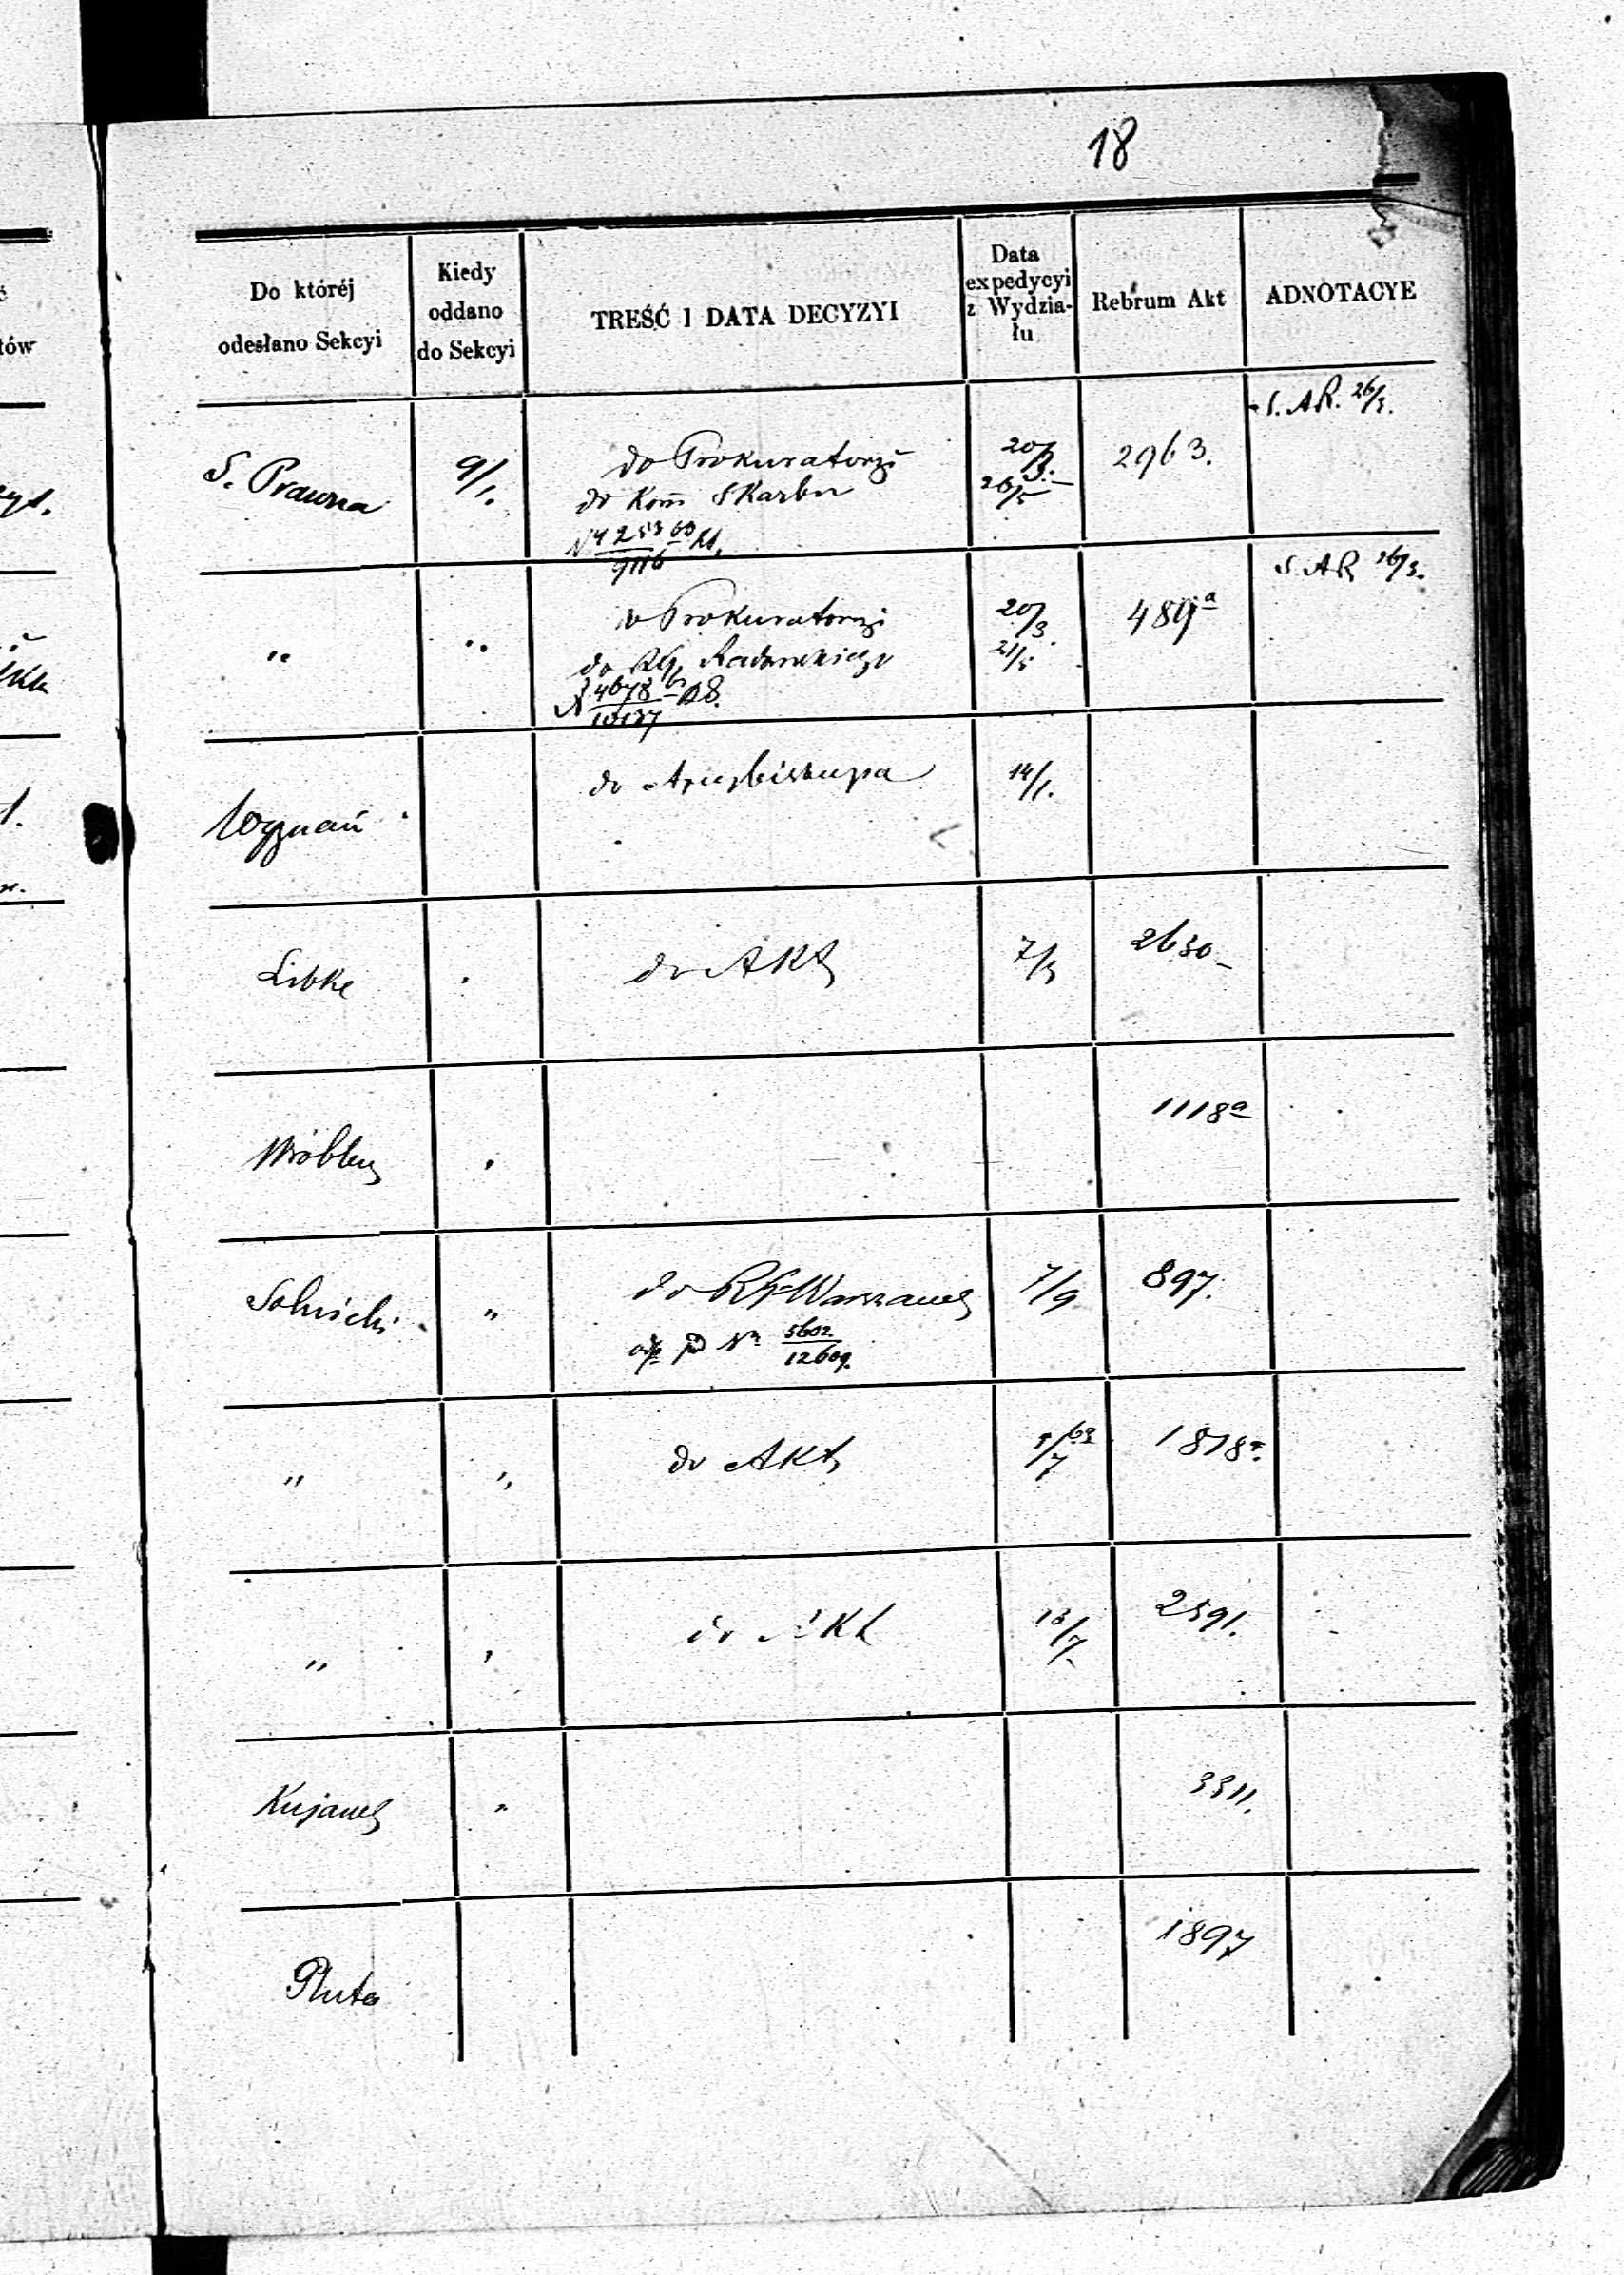 18
Do któréj
odesłano Sekcyi
Kiedy
oddano
do Sekcyi
TREŚĆ I DATA DECYZYI
Data
expedycyi
z Wydzia-
łu
Rebrum Akt
ADNOTACYE
S. Prawna
9/1.
do Prokuratoryi
do Kom Skarbu
20/3.
26/5
2963.
S. AR. 26/3.
„
„
do Prokuratoryi
do RG Radomskiego
4678
10137
20/3.
21/5
489a
S. AR 26/3.
Wyznań
do Arcybiskupa
14/1.
Libke
do Akt
7/3
2630
1118a
„
do RG Warszaws
odp pod Nr 5602
12609.
7/9
897.
„
„
do Akt
5/7 63
1818a.
„
do Akt
13/7
2591.
Kujaws
„
3311.
Pluto
1897